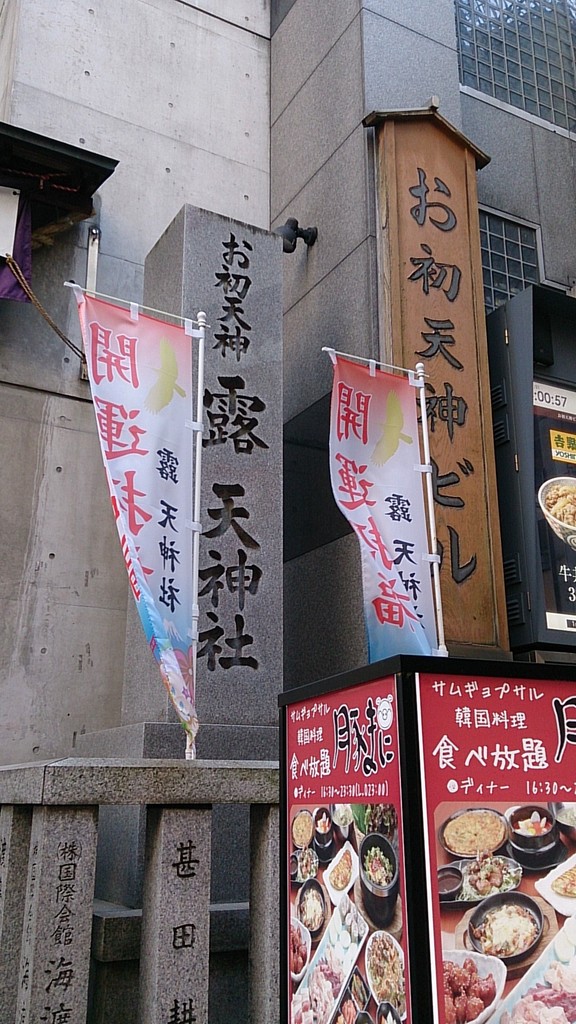 お初天神
露天神社
お初天神ビル
開運招福
露天神社
開運招福
露天神社
:00:57
吉野家
YOSHI
牛
サムギョプサル
韓国料理
豚まに
食べ放題
●ディナー 16:30~23:30(L.O23:00)
サムギョプサル
韓国料理
食べ放題
●ディナー 16:30~
㈱国際会館
海
甚田耕